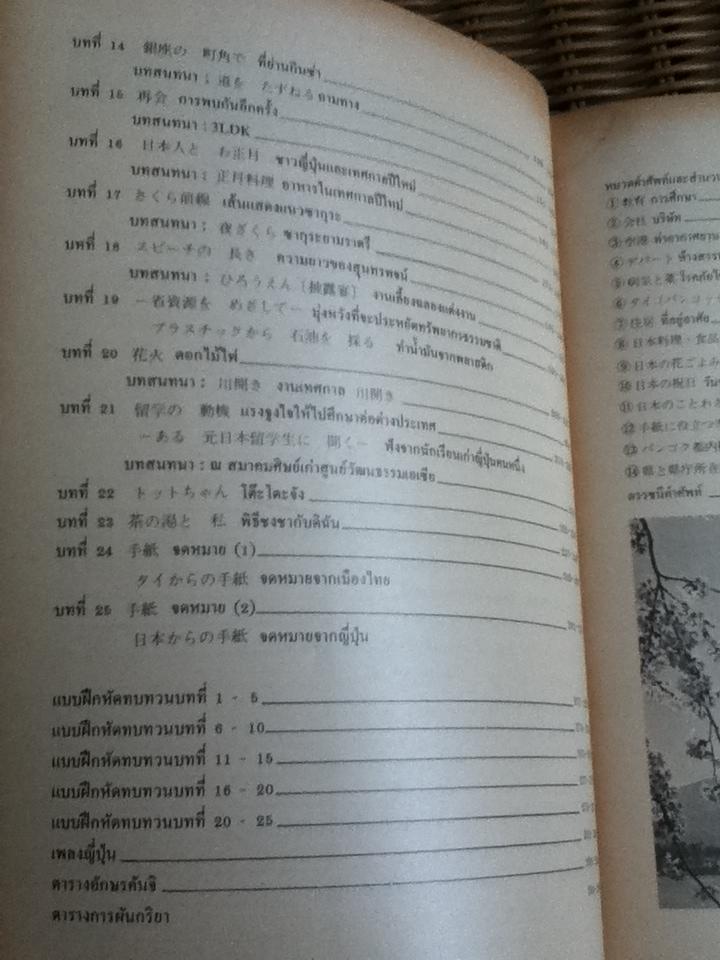 บทที่ 14 銀座の 町角で ที่ย่านกินซ่า
บทสนทนา : 道を たずねる ถามทาง
บทที่ 15 再会 การพบกันอีกครั้ง
บทสนทนา : 3LDK
บทที่ 16 日本人と お正月 ชาวญี่ปุ่นและเทศกาลปีใหม่
บทสนทนา : 正月料理 อาหารในเทศกาลปีใหม่
บทที่ 17 さくら前線 เส้นแสดงแนวซากุระ
บทสนทนา : 夜ざくら ซากุระยามราตรี
บทที่ 18 スピーチの 長さ ความยาวของสุนทรพจน์
บทสนทนา : ひろうえん〔披露宴〕 งานเลี้ยงฉลองแต่งงาน
บทที่ 19 ー省資源を めざしてー มุ่งหวังที่จะประหยัดทรัพยากรธรรมชาติ
プラスチックから 石油を 採る ทำน้ำมันจากพลาสติก
บทที่ 20 花火 ดอกไม้ไฟ
บทสนทนา : 川開き งานเทศกาล 川開き
บทที่ 21 留学の 動機 แรงจูงใจให้ไปศึกษาต่อต่างประเทศ
ーある 元日本留学生に 聞くー ฟังจากนักเรียนเก่าญี่ปุ่นคนหนึ่ง
บทสนทนา : ณ สมาคมศิษย์เก่าศูนย์วัฒนธรรมเอเซีย
บทที่ 22 トットちゃん โต๊ะโตะจัง
บทที่ 23 茶の湯と 私 พิธีชงชากับดิฉัน
บทที่ 24 手紙 จดหมาย (1)
タイからの手紙 จดหมายจากเมืองไทย
บทที่ 25 手紙 จดหมาย (2)
日本からの手紙 จดหมายจากญี่ปุ่น
แบบฝึกหัดทบทวนบทที่ 1 - 5
แบบฝึกหัดทบทวนบทที่ 6 - 10
แบบฝึกหัดทบทวนบทที่ 11 - 15
แบบฝึกหัดทบทวนบทที่ 16 - 20
แบบฝึกหัดทบทวนบทที่ 20 - 25
เพลงญี่ปุ่น
ตารางอักษรคันจิ
ตารางการผันกริยา
หมวดคำศัพท์และสำนวน
① 教育 การศึกษา
② 会社 บริษัท
③ 空港 ท่าอากาศยาน
④ デパート ห้างสรรพ
⑤ 病気と薬 โรคภัยไ
⑥ タイ〔バンコッ
⑦ 住居 ที่อยู่อาศัย
⑧ 日本料理・食品
⑨ 日本の花ごよみ
⑩ 日本の祝日 วัน
⑪ 日本のことわざ
⑫ 手紙に役立つ
⑬ バンコク都内
⑭ 県と県庁所在
ดรรชนีคำศัพท์